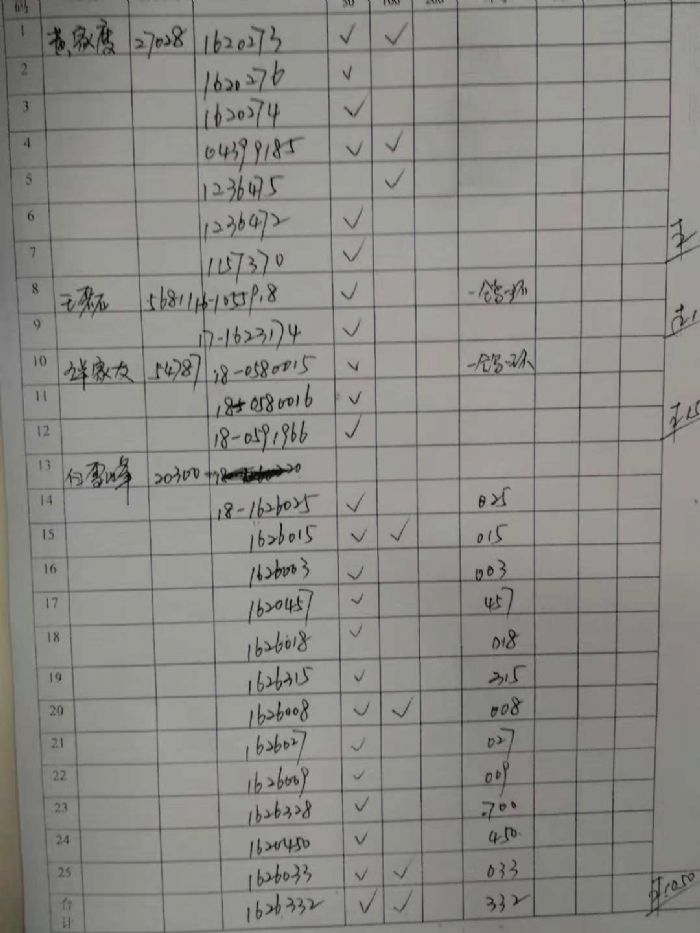 码 50 100 200
1 黄家度 27028 1620273 ✓ ✓
2 1620276 ✓
3 1620274 ✓
4 04399185 ✓ ✓
5 1236475 ✓
6 1236472 ✓
7 1157370 ✓
8 56811 16-1055918 ✓
9 17-1623174 ✓
10 家友 54787 18-0580015 ✓
11 18-0580016 ✓
12 18-0591966 ✓
13 白雪峰 20300
14 18-1626025 ✓ 025
15 1626015 ✓ ✓ 015
16 1626003 ✓ 003
17 1620457 ✓ 457
18 1626018 ✓ 018
19 1626315 ✓ 315
20 1626008 ✓ ✓ 008
21 1626027 ✓ 027
22 1626009 ✓ 009
23 1626328 ✓ 700
24 1620450 ✓ 450
25 1626033 ✓ ✓ 033
合计 1626332 ✓ ✓ 332